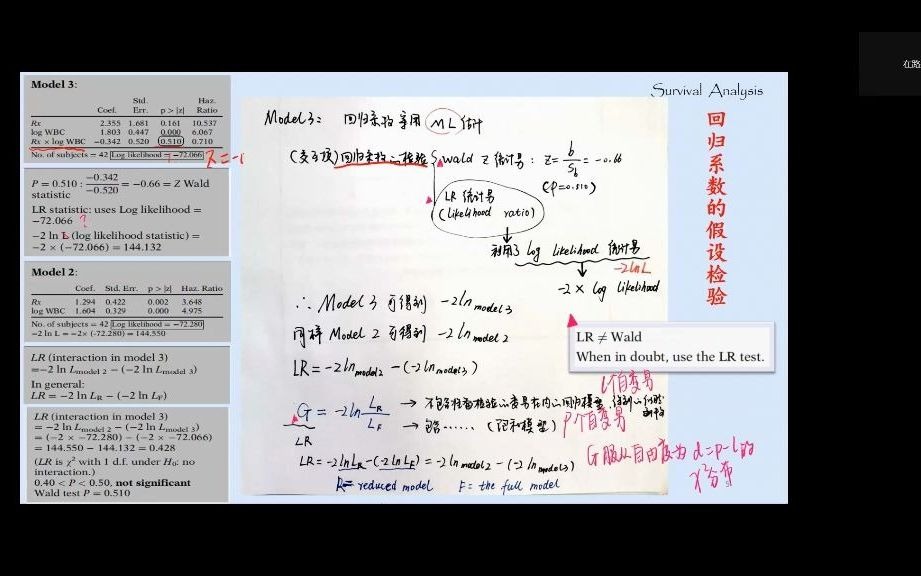 在路
Survival Analysis
回归系数的假设检验
Model 3:
Std. Haz.
Coef. Err. p > |z| Ratio
Rx 2.355 1.681 0.161 10.537
log WBC 1.803 0.447 0.000 6.067
Rx × log WBC −0.342 0.520 0.510 0.710
No. of subjects = 42 Log likelihood = −72.066
P = 0.510 : −0.342 / −0.520 = −0.66 = Z Wald
statistic
LR statistic: uses Log likelihood =
−72.066 ?
−2 ln L (log likelihood statistic) =
−2 × (−72.066) = 144.132
Model 2:
Coef. Std. Err. p > |z| Haz. Ratio
Rx 1.294 0.422 0.002 3.648
log WBC 1.604 0.329 0.000 4.975
No. of subjects = 42 Log likelihood = −72.280
−2 ln L = −2× (-72.280) = 144.550
LR (interaction in model 3)
=−2 ln L Model 2 − (−2 ln L Model 3)
In general:
LR = −2 ln LR − (−2 ln LF)
LR (interaction in model 3)
= −2 ln L Model 2 − (−2 ln L Model 3)
= (−2 × −72.280) − (−2 × −72.066)
= 144.550 − 144.132 = 0.428
(LR is χ² with 1 d.f. under H0: no
interaction.)
0.40 < P < 0.50, not significant
Wald test P = 0.510
Model 3: 回归系数采用 ML 估计
(交互项) 回归系数的检验 wald Z 统计量: Z= b/Sb = −0.66
(P=0.510)
LR 统计量
(likelihood ratio)
利用了 log likelihood 统计量
-2lnL
−2 × log likelihood
∴ Model 3 可得到 −2ln model 3
同样 Model 2 可得到 −2ln model 2
LR = −2ln model 2 − (−2ln model 3)
LR ≠ Wald
When in doubt, use the LR test.
l个自变量
G = −2ln LR/LF → 不包括待检验的变量在内的回归模型
→ 包括…… (饱和模型) P个自变量
LR
G服从自由度为 d=p-l 的
χ²分布
LR = −2lnLR−(−2lnLF) = −2ln model 2 − (−2ln model 3)
R= reduced model F= the full model